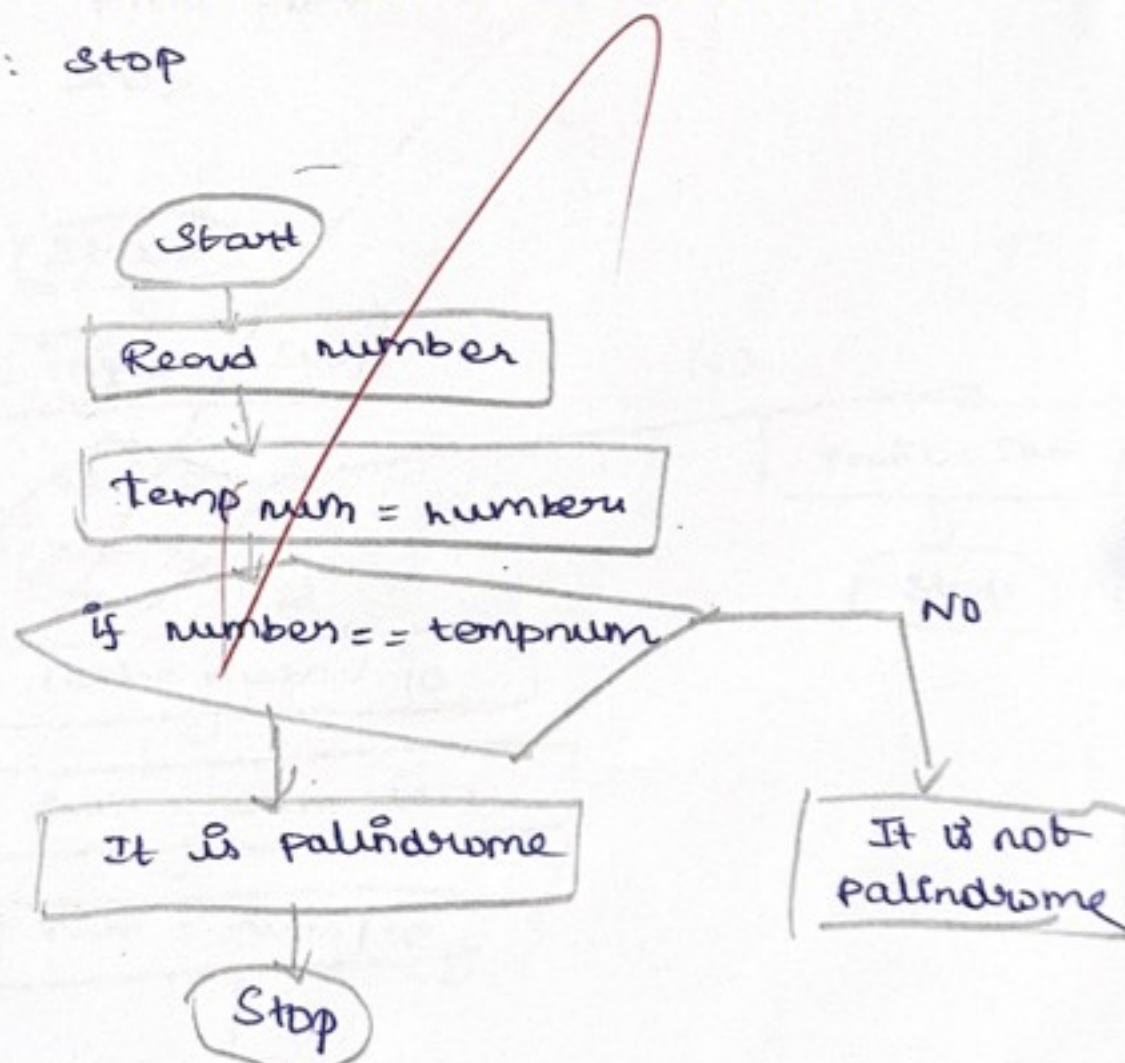 : Stop
Start
Read number
temp num = number
if number == tempnum
NO
It is palindrome
It is not
palindrome
Stop